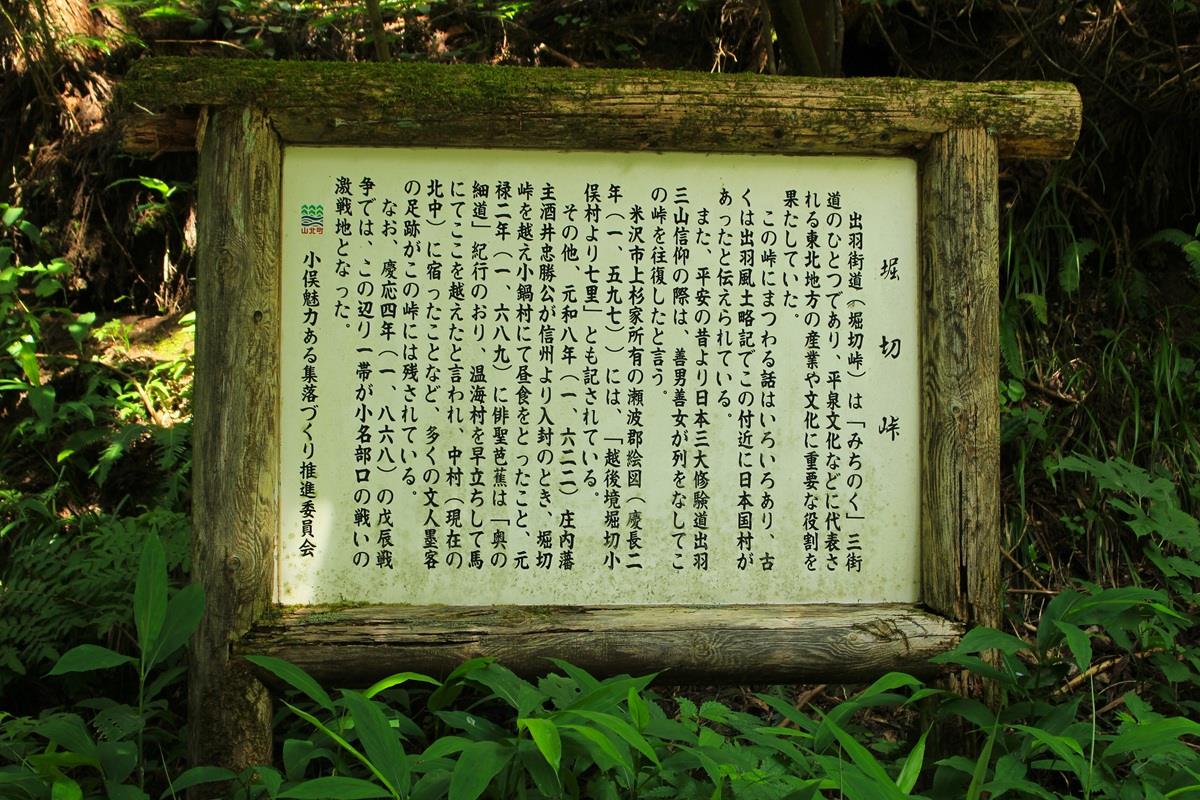 堀切峠
出羽街道（堀切峠）は「みちのく」三街
道のひとつであり、平泉文化などに代表さ
れる東北地方の産業や文化に重要な役割を
果たしていた。
この峠にまつわる話はいろいろあり、古
くは出羽風土略記でこの付近に日本国村が
あったと伝えられている。
また、平安の昔より日本三大修験道出羽
三山信仰の際は、善男善女が列をなしてこ
の峠を往復したと言う。
米沢市上杉家所有の瀬波郡絵図（慶長二
年（一、五九七））には、「越後境堀切小
俣村より七里」とも記されている。
その他、元和八年（一、六二二）庄内藩
主酒井忠勝公が信州より入封のとき、堀切
峠を越え小鍋村にて昼食をとったこと、元
禄二年（一、六八九）に俳聖芭蕉は「奥の
細道」紀行のおり、温海村を早立ちして馬
にてここを越えたと言われ、中村（現在の
北中）に宿ったことなど、多くの文人墨客
の足跡がこの峠には残されている。
なお、慶応四年（一、八六八）の戊辰戦
争では、この辺り一帯が小名部口の戦いの
激戦地となった。
小俣魅力ある集落づくり推進委員会
山北町